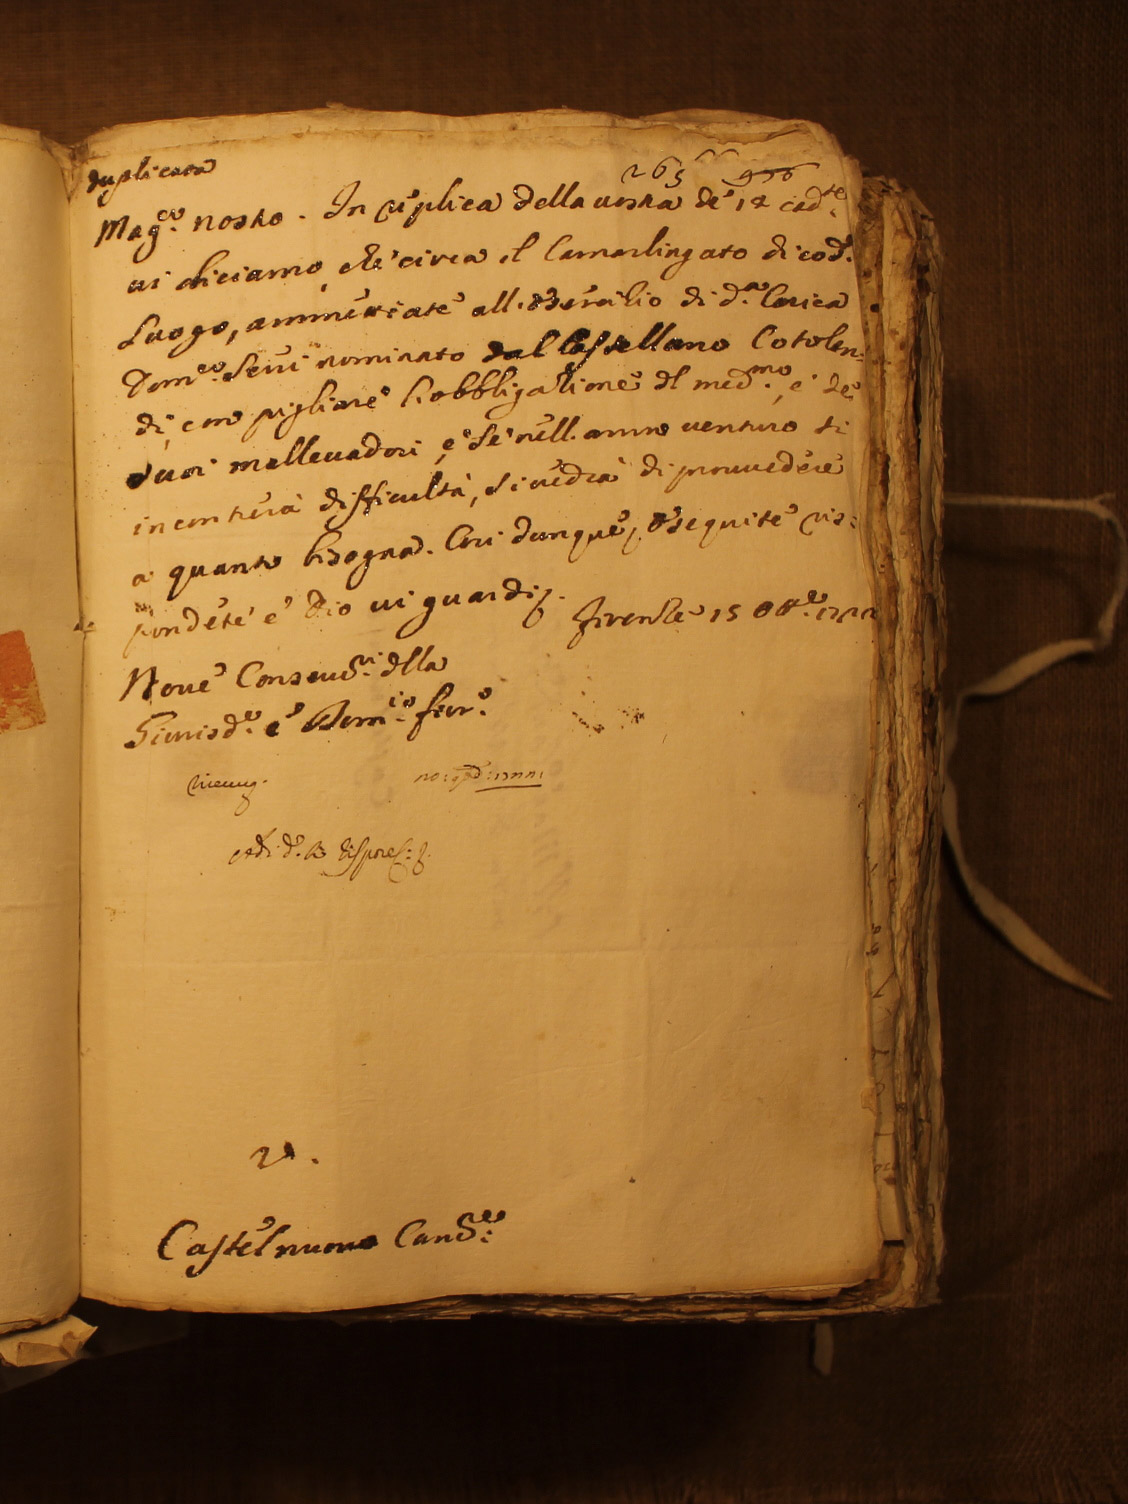 duplicata
265 936
Mag.co nostro. In replica della vostra de' 12 cad.te
vi diciamo, che circa il Camarlingato di cod.o
Luogo, ammettiate all'esercitio di d.a Carica
Dom.co Seri nominato dal Castellano Cotolen=
di, con pigliare l'obbligazione del med.mo, e de
suoi mallevadori, e se nell'anno venturo si
incontrerà difficultà, si vedrà di provvedere
a quanto bisogna. Così dunque eseguite ris=
pondete e Dio vi guardi. Firenze 15 Ott.e 1722
Nove Conserv.ri della
Giurisd.e e Dom.io fior.o
V.
Castelnuovo Canc.re